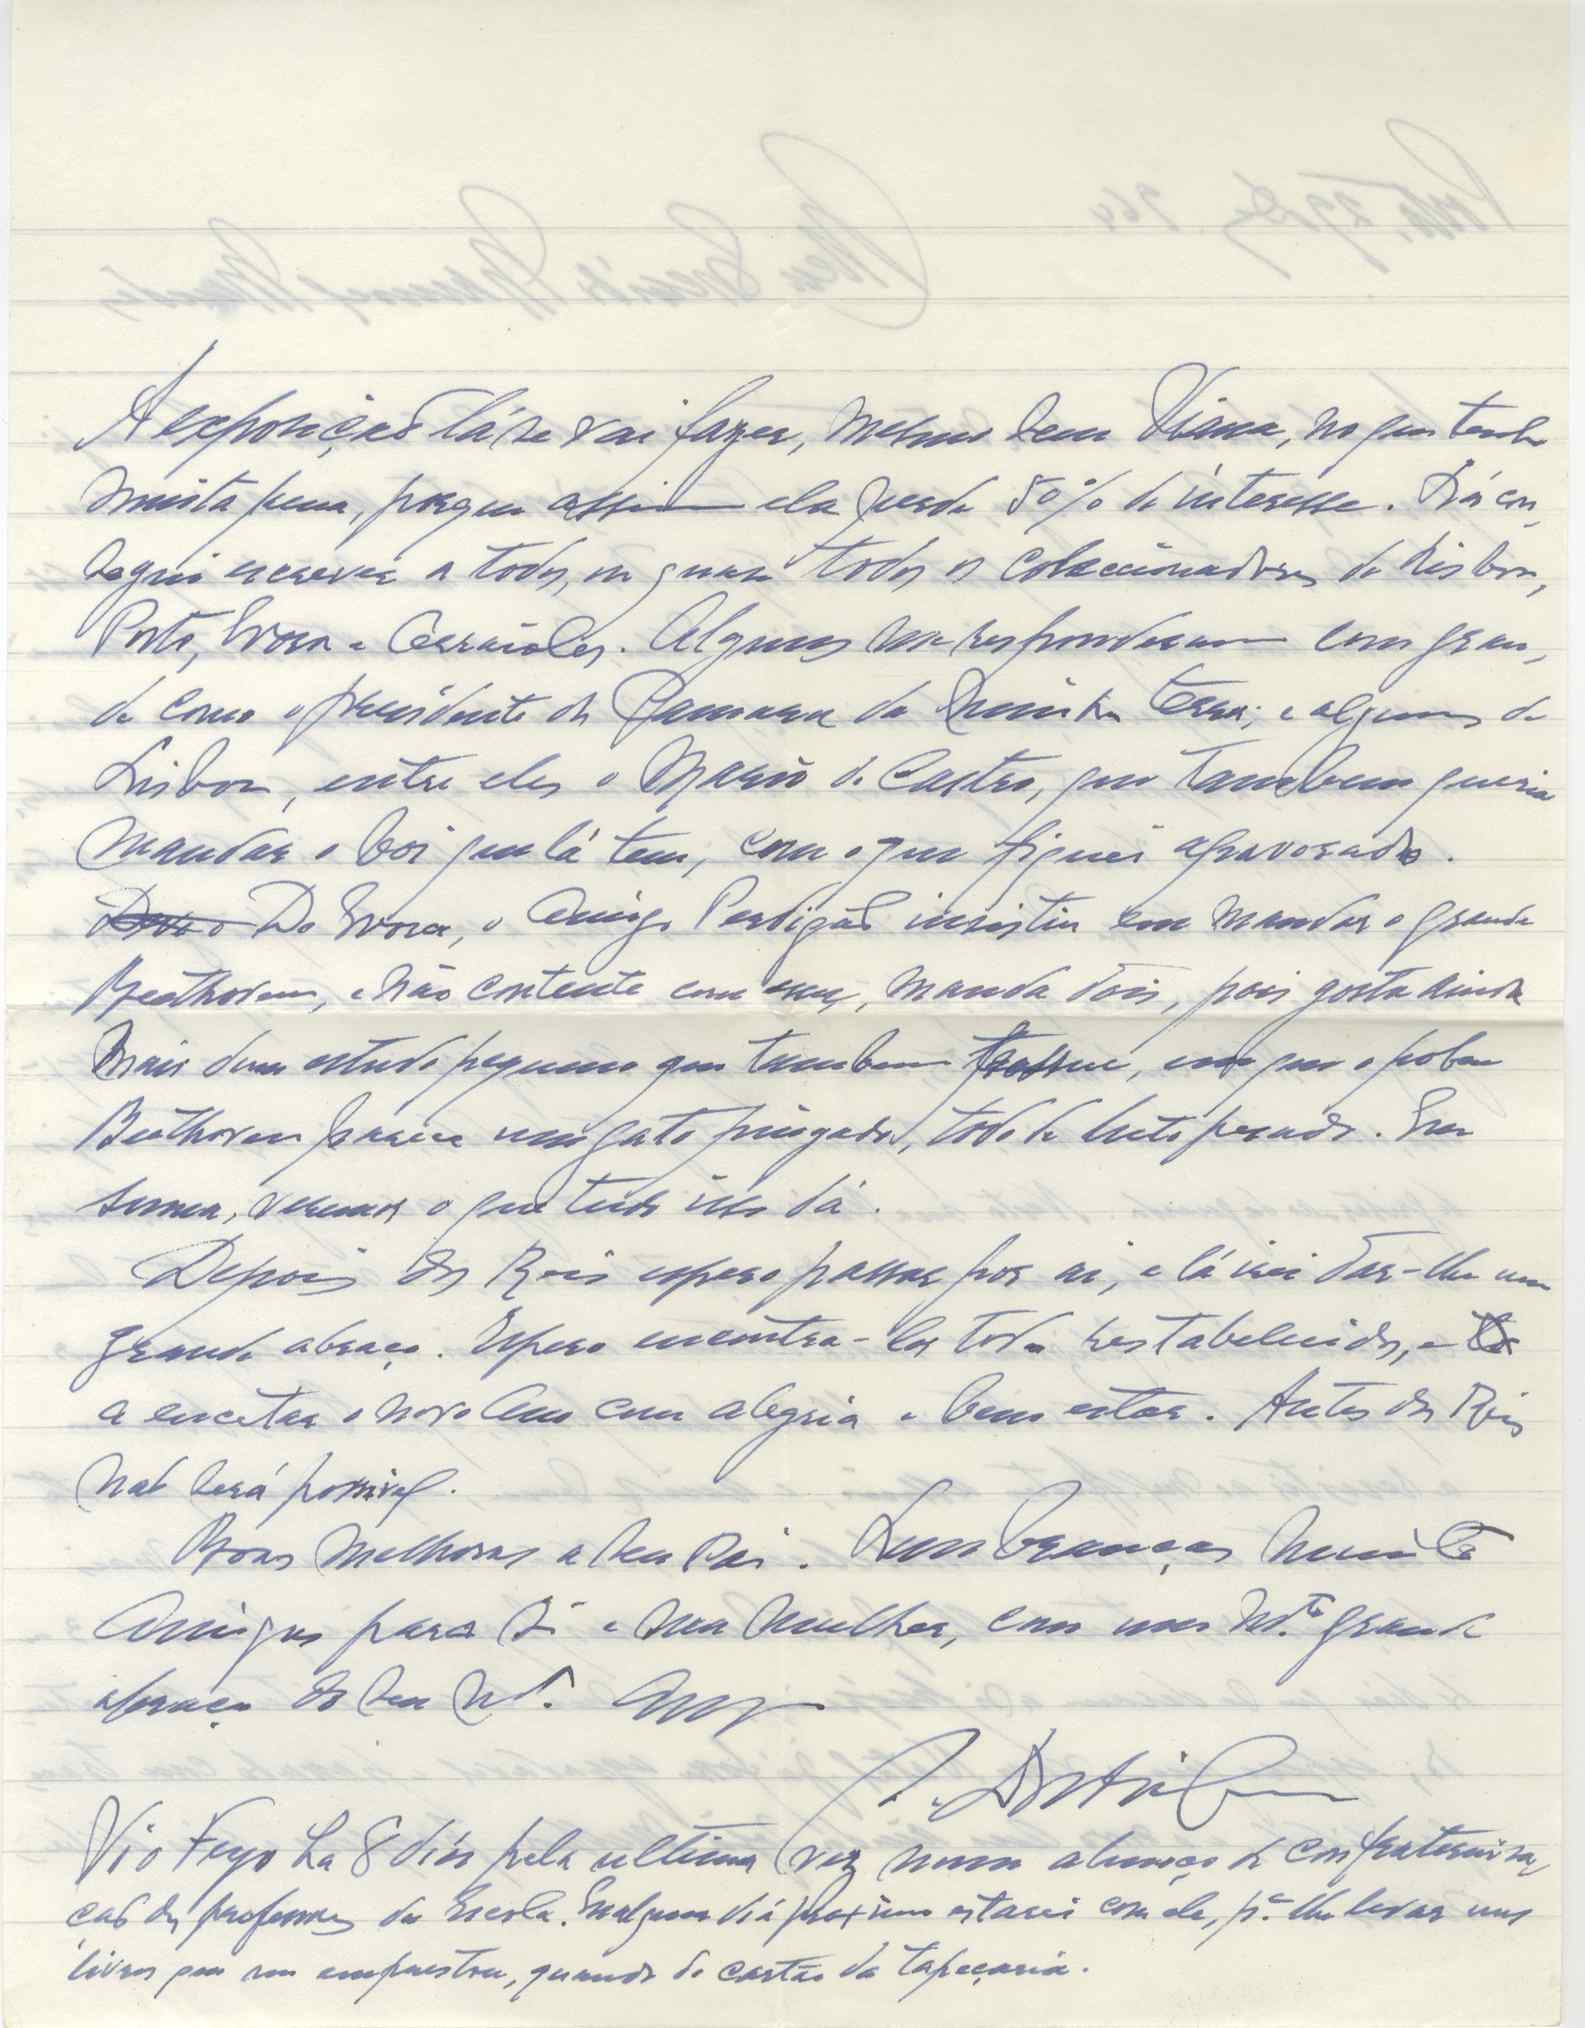 A exposição lá se vai fazer, mesmo sem Viana, no que tenho
muita pena, porque assim ela perde 50% de interesse. Já con-
segui escrever a todos, ou quase todos os coleccionadores de Lisboa,
Porto, Evora e Arraiolos. Alguns me responderam com gran-
de como o presidente da Camara da terra; e alguns de
Lisboa, entre eles o Mario de Castro, que tambem queria
mandar o boi que lá tem, com o que fiquei apavorado.
De Evora, o Amigo Perdigão insistiu em mandar o grande
Beethoven, e não contente com esse, manda dois, pois gosta ainda
mais dum estudo pequeno que tambem possue, em que o pobre
Beethoven parece um gato pingado, todo de luto pesado. Em
suma, veremos o que tudo isso dá.
Depois dos Reis espero passar por ai, e lá irei dar-lhe um
grande abraço. Espero encontra-los todos restabelecidos, e
a encetar o novo Ano com alegria e bem estar. Antes dos Reis
não será possivel.
Boas melhoras a seu Pai. Lembranças muito
Amigas para si e sua mulher, com um mt.º grande
abraço do seu mt.º Amº
Vi o Feyo ha 8 dias pela ultima vez num almoço de confraternisa-
ção dos professores da Escola. Em algum dia proximo estarei com ele, p.ª lhe levar uns
livros que me emprestou, quando do cartão da tapeçaria.